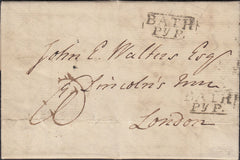 BATH
Py P.
John E. Walters Esq
Lincoln's Inn
London
BATH
Py P.